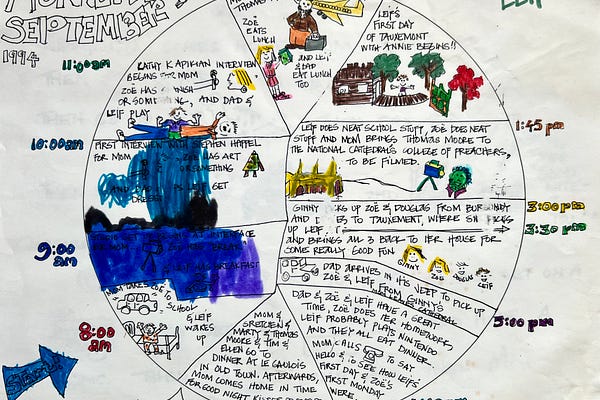 SEPTEMBER
1994
11:00am
KATHY KAPIKIAN INTERVIEW
BEGINS FOR MOM
ZOË HAS
OR SOMETHING, AND DAD &
LEIF PLAY
ZOË
EATS
LUNCH
AND LEIF
& DAD
EAT LUNCH
TOO
LEIF'S
FIRST DAY
OF TAUXEMONT
WITH ANNIE BEGINS!!
10:00am
FIRST INTERVIEW WITH STEPHEN HAPPEL
FOR MOM
ZOË HAS ART
OR SOMETHING
AND DAD
LEIF GET
DRESSED
1:45 pm
LEIF DOES NEAT SCHOOL STUFF, ZOË DOES NEAT
STUFF AND MOM BRINGS THOMAS MOORE TO
THE NATIONAL CATHEDRAL'S COLLEGE OF PREACHERS,
TO BE FILMED.
3:00 pm
3:30 pm
GINNY PICKS UP ZOË & DOUGLAS FROM BURGUNDY
AND TO TAUXEMONT, WHERE SH PICKS
UP LEIF,
AND BRINGS ALL 3 BACK TO HER HOUSE FOR
SOME REALLY GOOD FUN.
GINNY
ZOË
DOUGLAS
LEIF
9:00
am
FOR MOM
ZOË HAS
LEIF HAS BREAKFAST
DAD ARRIVES IN HIS JEEP TO PICK UP
ZOË & LEIF FROM GINNY'S
5:00 pm
MOM TAKES ZOË TO
SCHOOL
& LEIF
WAKES
UP
8:00
am
START
MOM &
GRETCHEN &
MARTY & THOMAS
MOORE & TIM &
ELLEN GO TO
DINNER AT LE GAULOIS
IN OLD TOWN. AFTERWARDS,
MOM COMES HOME IN TIME
FOR GOOD NIGHT
DAD & ZOË & LEIF HAVE A GREAT
TIME, ZOË DOES HER HOMEWORK,
LEIF PROBABLY PLAYS NINTENDO
AND THEY ALL EAT DINNER.
MOM CALLS TO SAY
HELLO & TO SEE HOW LEIF'S
FIRST DAY & ZOË'S
FIRST MONDAY
WERE.